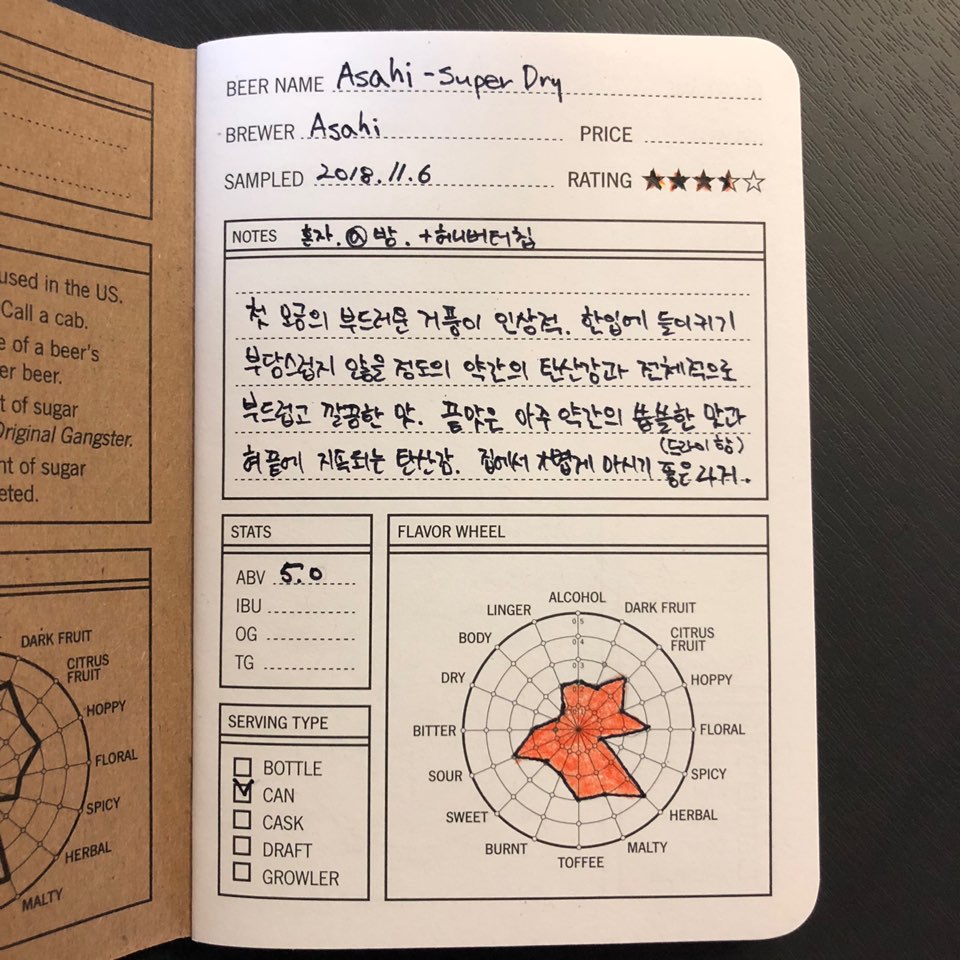 BEER NAME Asahi - Super Dry
BREWER Asahi PRICE
SAMPLED 2018.11.6 RATING
NOTES 혼자. @ 방. + 허니버터칩
첫 모금의 부드러운 거품이 인상적. 한입에 들이키기
부담스럽지 않을 정도의 약간의 탄산감과 전체적으로
부드럽고 깔끔한 맛. 끝맛은 아주 약간의 씁쓸한 맛과
(드라이향)
혀끝에 지속되는 탄산감. 집에서 가볍게 마시기 좋은 라거.
STATS
ABV 5.0
IBU
OG
TG
SERVING TYPE
BOTTLE
CAN
CASK
DRAFT
GROWLER
FLAVOR WHEEL
ALCOHOL
DARK FRUIT
CITRUS
FRUIT
HOPPY
FLORAL
SPICY
HERBAL
MALTY
TOFFEE
BURNT
SWEET
SOUR
BITTER
DRY
BODY
LINGER
used in the US.
Call a cab.
e of a beer's
er beer.
t of sugar
Original Gangster.
nt of sugar
eted.
DARK FRUIT
CITRUS
FRUIT
HOPPY
FLORAL
SPICY
HERBAL
MALTY